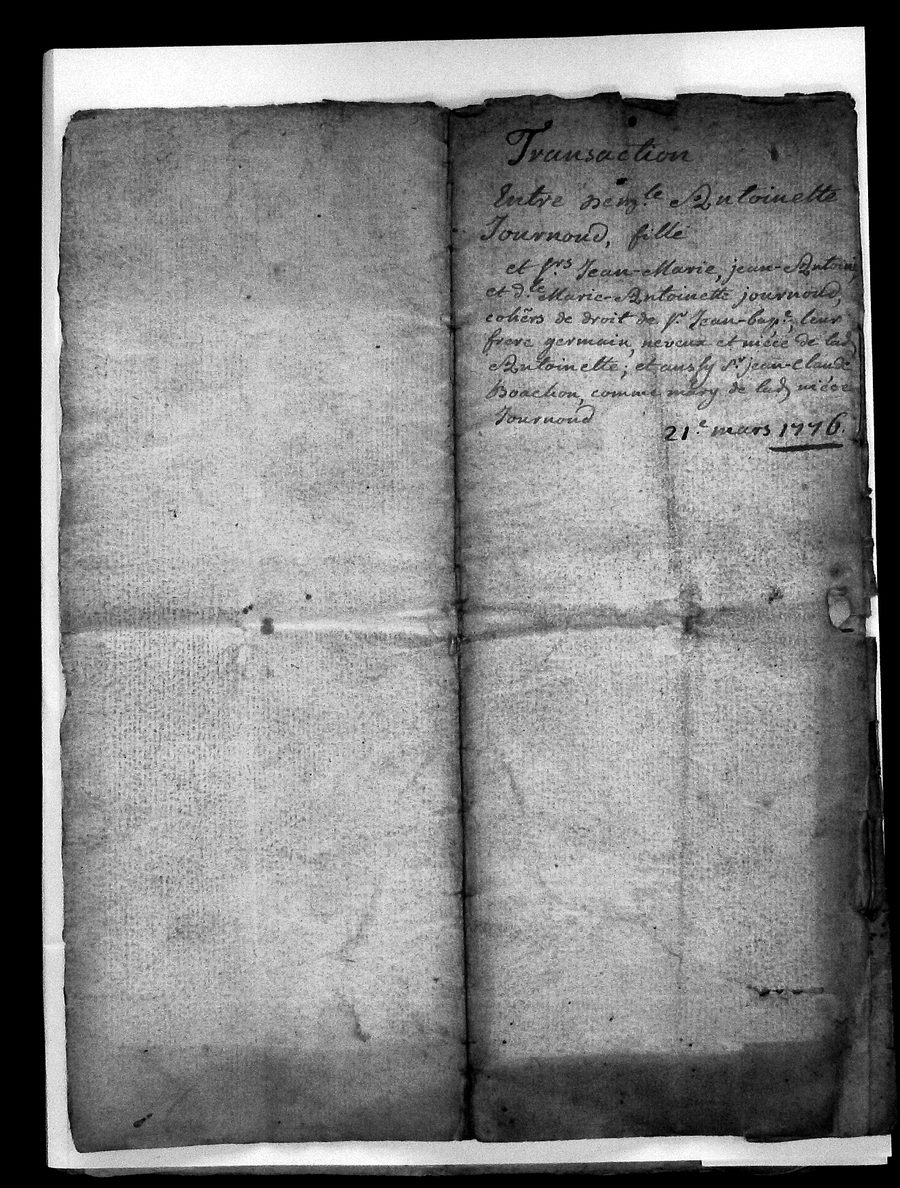 Transaction
Entre demlle Antoinette
Journoud, fille
et srs Jean-Marie, jean-Antoine,
et d.lle Marie-Antoinette journoud,
cohẽrs de droit de sr Jean-bapt.e, leur
frere germain, neveux et niéce de lad.
Antoinette; et aussy sr jean-Claude
Boachon, comme mary de lad. niéce
Journoud
21.e mars 1776.